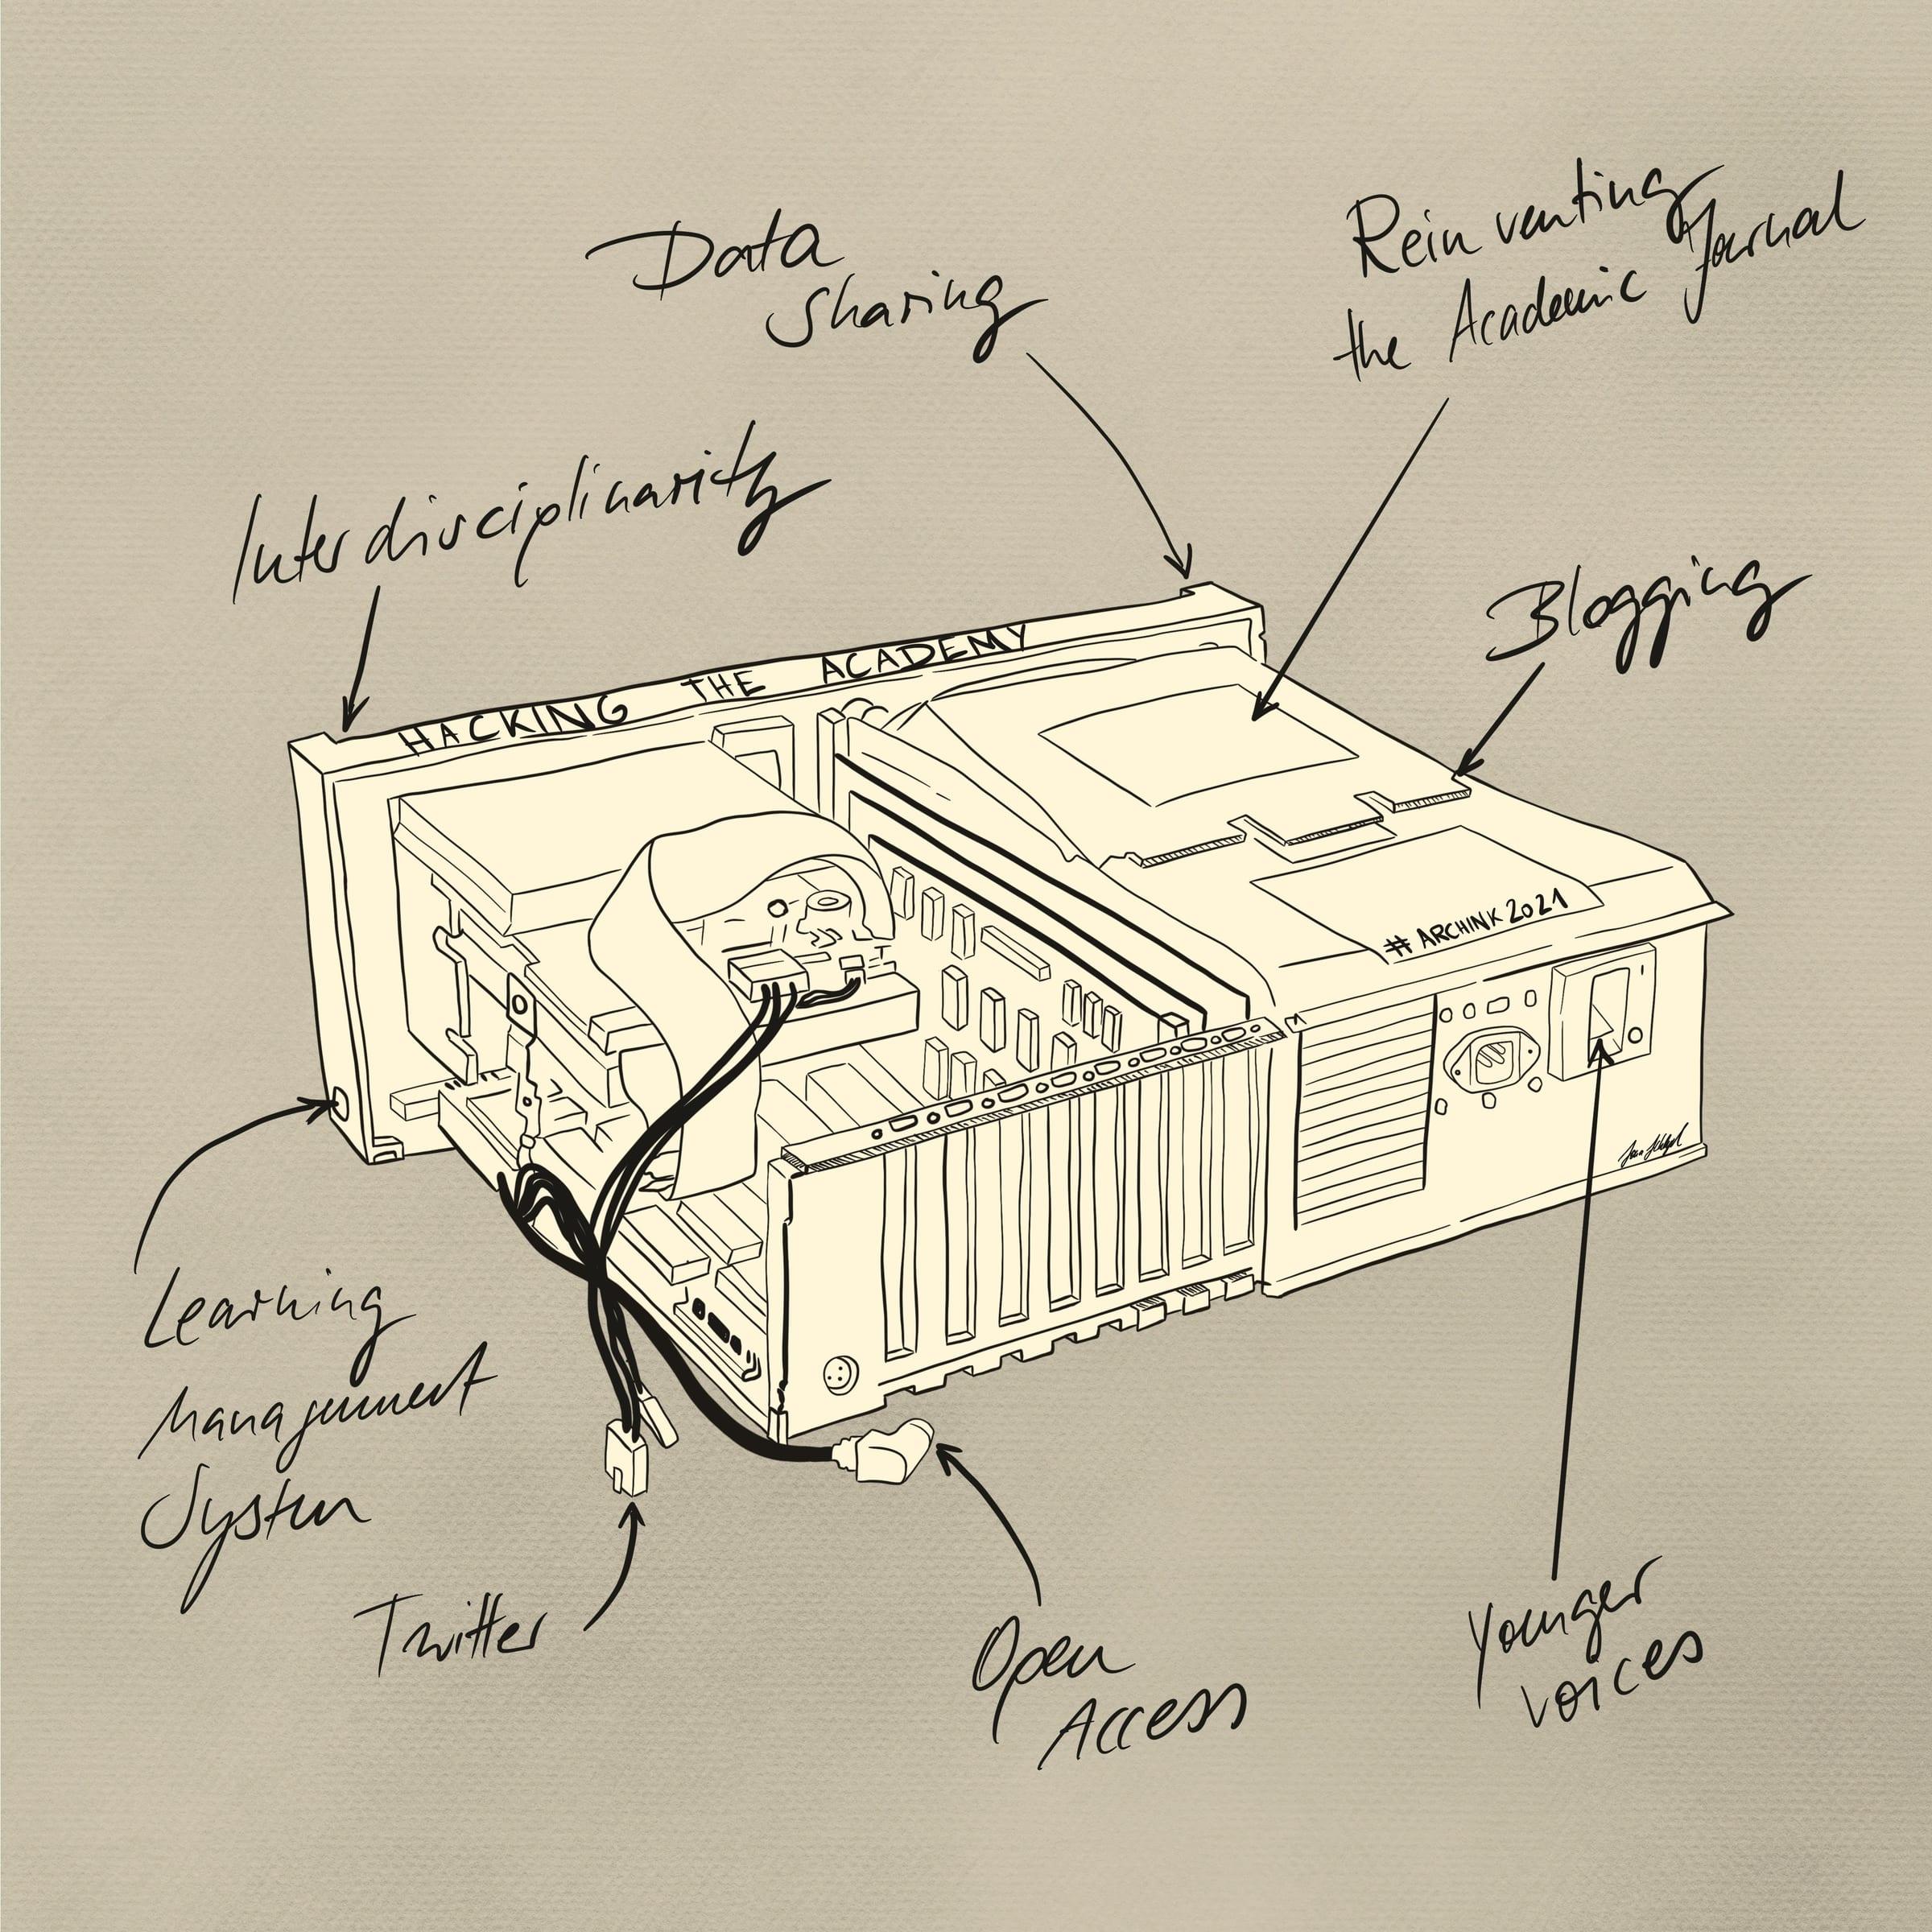 Data
Sharing
Reinventing
the Academic Journal
Interdisciplinarity
Blogging
HACKING THE ACADEMY
# ARCHINK 2021
Learning
Management
System
Twitter
Open
Access
Younger
voices